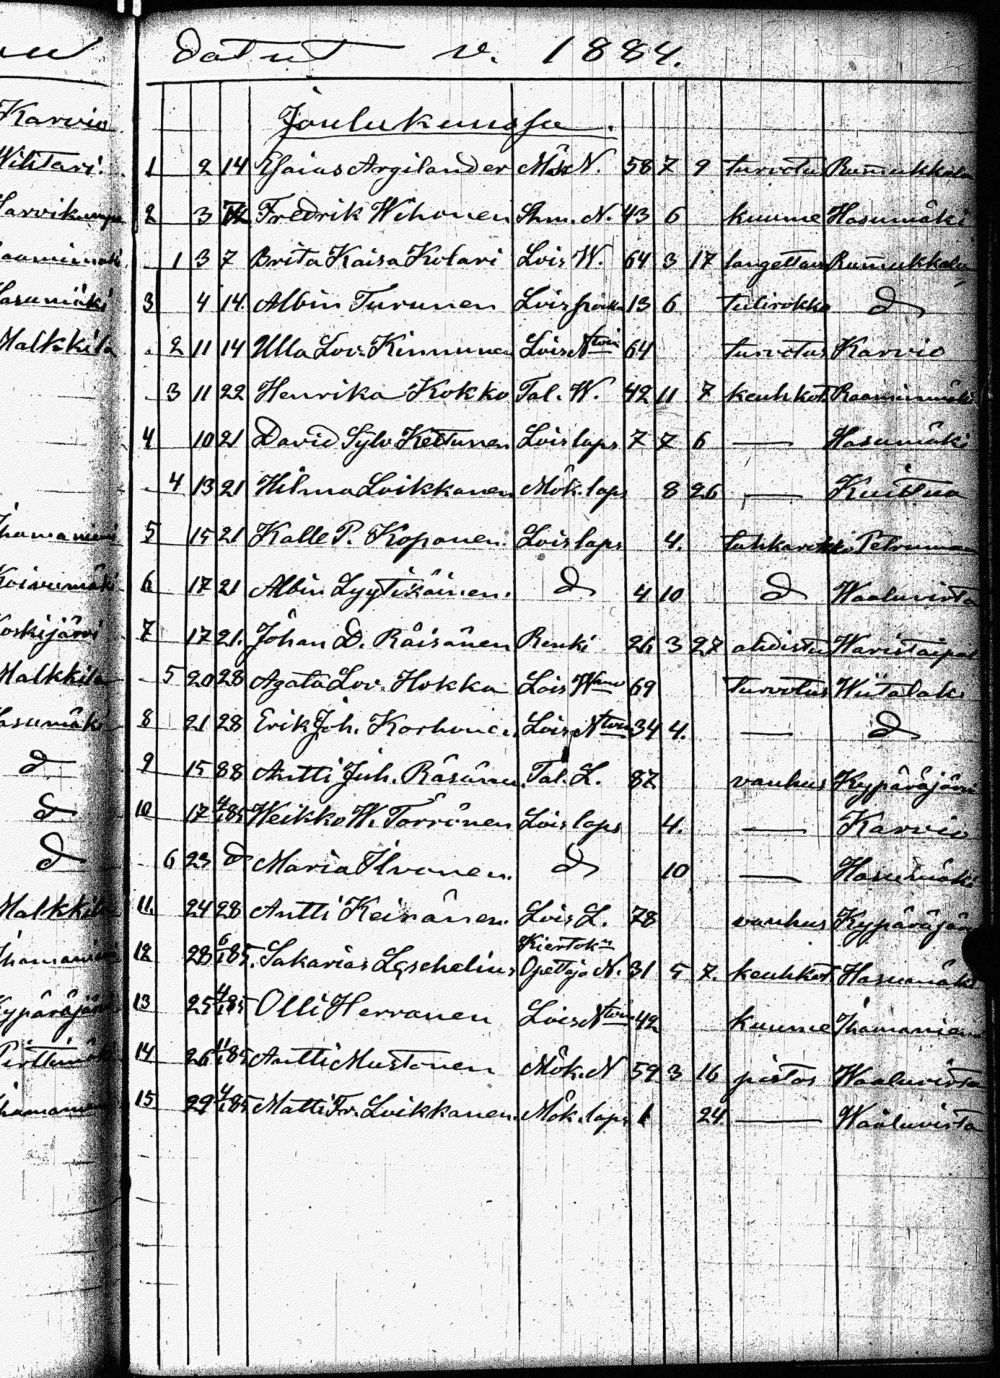 Karvio
Malkkila
Malkkila
d
d
d
Malkkila
datut v. 1884.
Joulukuussa.
1 2 14 Esaias Argilander Mök N. 58 7 9 turvotus Rummukkala
2 3 Fredrik Wihonen Thm. N. 43 6 kuume Hasumäki
1 3 7 Brita Kaisa Kolari Lois W. 64 3 17 langettava Rummukkala
3 4 14. Albin Turunen Lois poika 13 6 tulirokko d
2 11 14 Ulla Lov. Kinnunen Lois Ntwäi 64 turvotus Karvio
3 11 22 Henrika Kokko Tal. W. 42 11 7 keuhkot Raaminmäki
4 10 21 David Sylv Kettunen Lois laps 7 7 6 — Hasumäki
4 13 21 Hilma Loikkanen Mök. laps 8 26 — Kuittua
5 15 21 Kalle P. Koponen Lois laps 4. tuhkarokko Petruma
6 17 21 Albin Lyytikäinen. d 4 10 d Waaluvirta
7 17 21. Johan D. Räisänen Renki 26 3 27 ahdistus Waristaipale
5 20 28 Agata Lov. Hokka Lois 69 turvotus Wiitalak
8 21 28 Erik Joh. Korhonen Lois 34 4. — d
9 15 88 Antti Juh. Räsänen Tal. L. 87 vanhus Kypäräjärvi
10 17 4/1 85 Weikko W. Törrönen Lois laps 4. — Karvio
6 23 d Maria Ilvonen. d 10 — Hasumäki
11. 24 28 Antti Keinänen. Lois L. 78 vanhus Kypäräjärvi
Kiertok.
12 28 6/1 85. Sakarias Lyschelius Opettaja N. 31 5 7. keuhkot Hasumäki
13 25 4/1 85 Olli Herranen Lois 42 kuume Ihamaniemi
14 26 11/1 85 Antti Mustonen Mök. N 59 3 16 pistos Waaluvirta
15 29 4/1 85 Matti Fr. Loikkanen. Mök. laps 1 24. — Waaluvirta